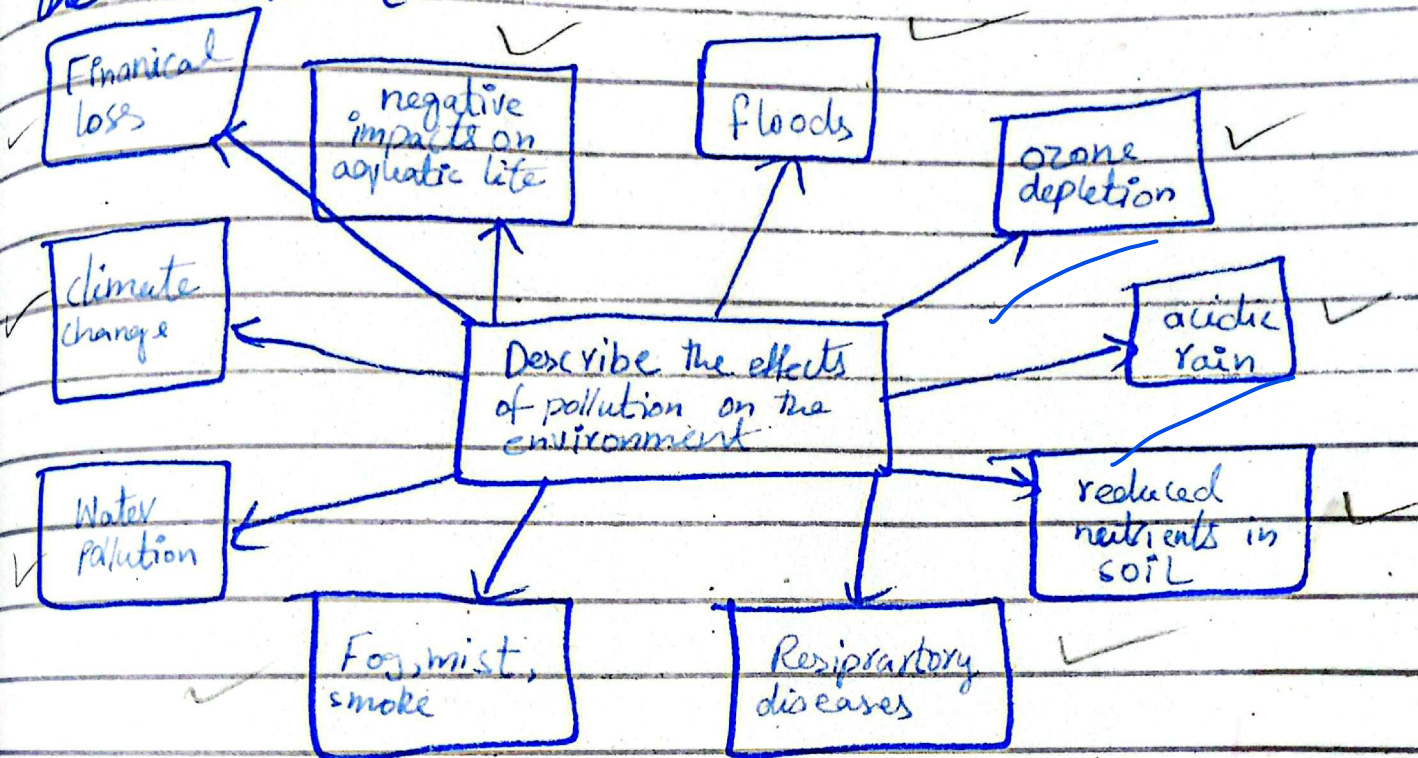 Finanical
loss
negative
impacts on
aquatic life
floods
ozone
depletion
climate
change
Describe the effects
of pollution on the
environment
acidic
rain
Water
Pollution
reduced
nutrients in
SOIL
Fog, mist,
smoke
Resiprartory
diseases